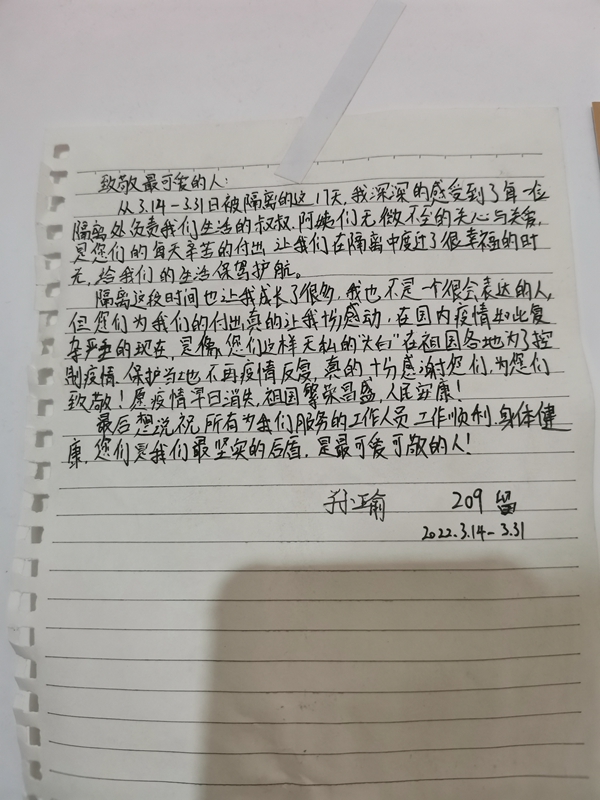 致敬最可爱的人:
从3.14-3.31日被隔离的这17天,我深深的感受到了每一位
隔离处负责我们生活的叔叔.阿姨们无微不至的关心与关爱,
是您们的每天辛苦的付出.让我们在隔离中度过了很幸福的时
光,给我们的生活保驾护航。
隔离这段时间也让我成长了很多,我也不是一个很会表达的人,
但您们为我们的付出真的让我十份感动,在国内疫情如此复
杂严重的现在,是像您们这样无私的"大白"在祖国各地为了控
制疫情.保护当地不再疫情反复,真的十份感谢您们,为您们
致敬!愿疫情早日消失,祖国繁荣昌盛,人民安康!
最后想说祝,所有为我们服务的工作人员工作顺利.身体健
康,您们是我们最坚实的后盾,是最可爱可敬的人!
孙瑜 209 留
2022.3.14-3.31